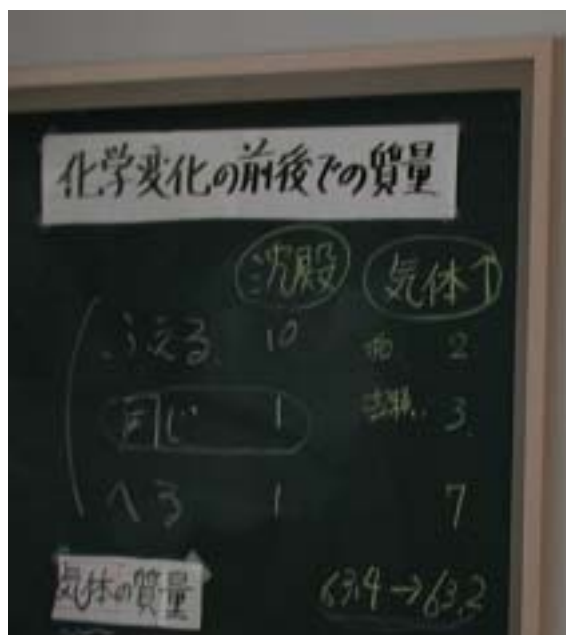 化学変化の前後での質量
沈殿 気体↑
ふえる 10 2
同じ 1 3
へる 1 7
気体の質量 63.4→63.2